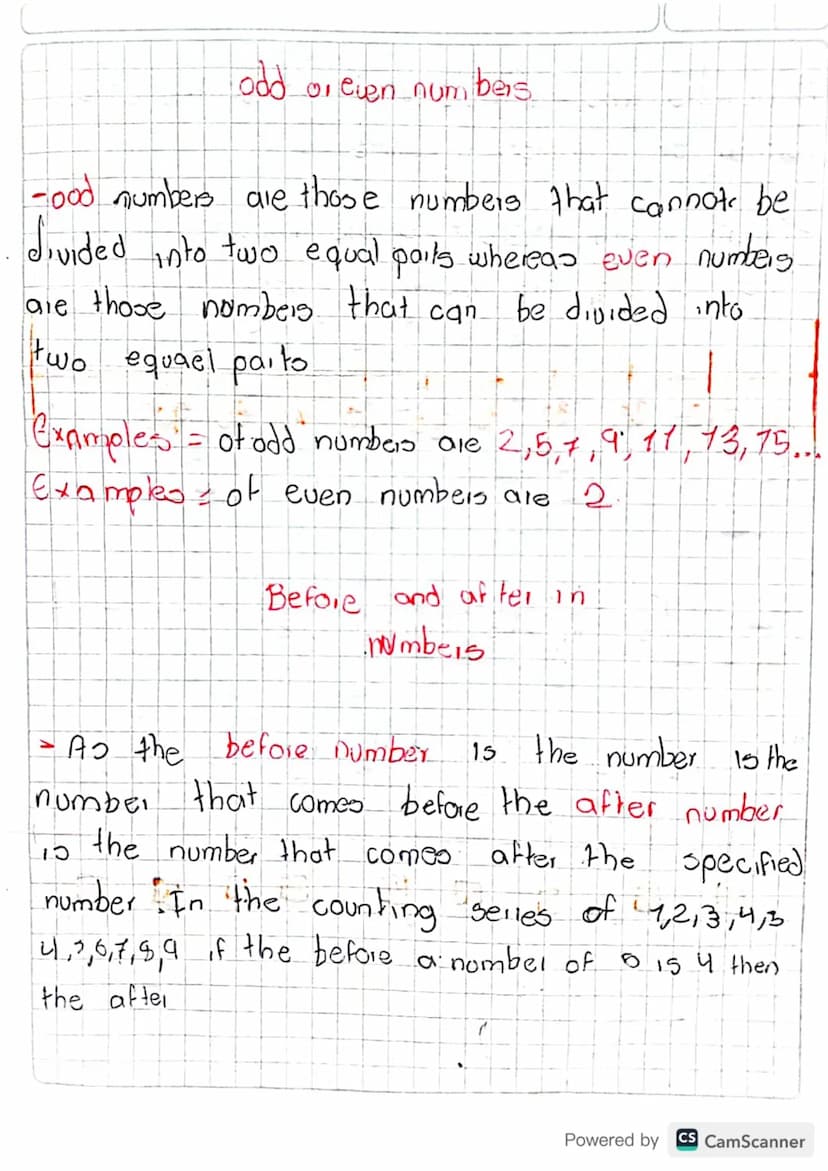 odd or even numbers
-ood numbers are those numbers that cannot be
divided into two equal parts whereas even numbers
are those nombers that can be divided into
two equael parts
Examples = of odd numbers are 2,5,7,9,11,13,15...
Examples = of even numbers are 2
Before and after in
numbers
> As the before number is the number is the
number that comes before the after number
is the number that comes after the specified
number. In the counting series of 1,2,3,4,5
4,5,6,7,8,9 if the before a number of 5 is 4 then
the after
Powered by CS CamScanner